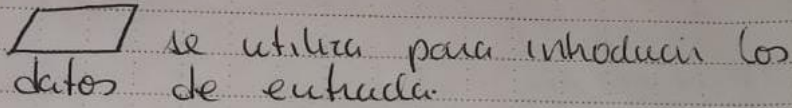 se utiliza para introducir los
datos de entrada.